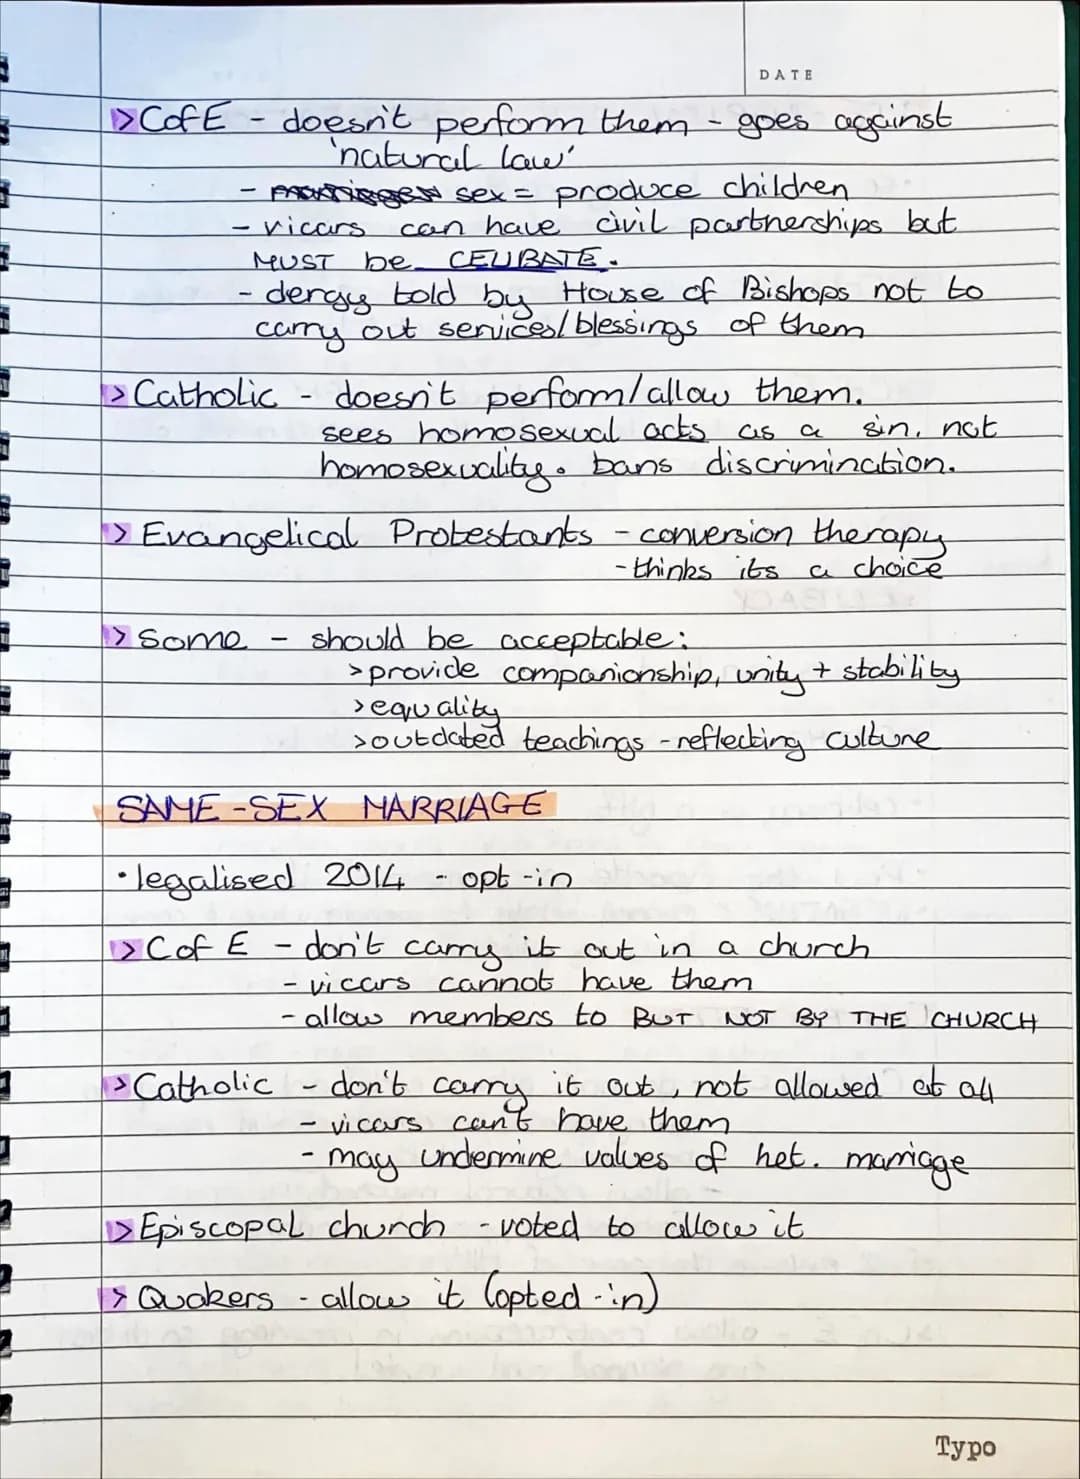 DATE
> CofE - doesn't perform them - goes against
'natural law'
- sex = produce children
- vicars can have civil partnerships but
MUST be CELIBATE.
- clergy told by House of Bishops not to
carry out services/blessings of them
> Catholic - doesn't perform/allow them.
sees homosexual acts as a sin, not
homosexuality. bans discrimination.
> Evangelical Protestants - conversion therapy
- thinks its a choice
> Some - should be acceptable:
> provide companionship, unity + stability
> equality
> outdated teachings - reflecting culture
SAME-SEX MARRIAGE
• legalised 2014 - opt-in
> C of E - don't carry it out in a church
- vicars cannot have them
- allow members to BUT NOT BY THE CHURCH
> Catholic - don't carry it out, not allowed at all
- vicars can't have them
- may undermine values of het. marriage
> Episcopal church - voted to allow it
> Quakers - allow it (opted-in)
Typo